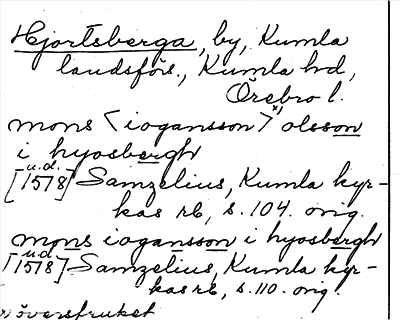 Hjortsberga, by, Kumla
landsförs., Kumla hd,
Örebro l.
mons <iogansson>x) olsson
i hyosbergh
[u.d. 1578] Samzelius, Kumla kyr-
kas rb, s. 104. orig.
mons iogansson i hyosbergh
[u.d. 1578] Samzelius, Kumla kyr-
kas rb, s. 110. orig.
överstruket